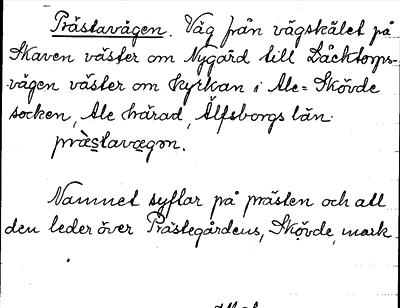 Prästavägen. Väg från vägskälet på
Skaven väster om Nygård till Låcktorps-
vägen väster om kyrkan i Ale-Skövde
socken, Ale härad, Älfsborgs län.
præstavægɔn.
Namnet syftar på prästen och att
den leder över Prästegårdens, Skövde, mark.